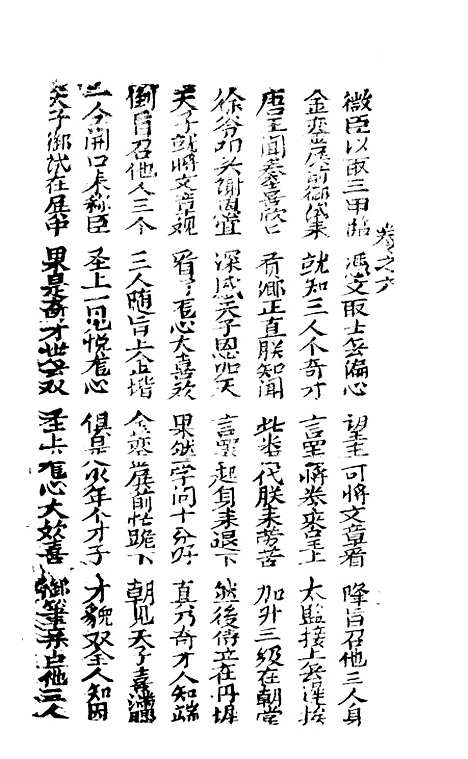 卷之六
微臣以取三甲榜 憑文取士無偏心 望主可將文章看 降旨召他三人身
金鑾殿前御試來 就知三人个奇才 言罷將卷來呈上 太監接上無遲挨
唐王聞奏喜欣口 賢卿正直朕知聞 此番代朕來勞苦 加升三級在朝堂
徐爷叩头謝恩宜 深感天子恩如天 言罷起身來退下 然後侍立在丹墀
天子就將文章观 看了龙心大喜欢 果然學问十分好 真乃奇才人知端
倒旨召他人三个 三人随旨上金堦 金鑾殿前忙跪下 朝見天子喜滿
三人開口来称臣 圣上一见悦龙心 俱是年个才子 才貌双全人知因
天子御试在殿中 果是奇才世無双 圣上龙心大欢喜 御筆他三人